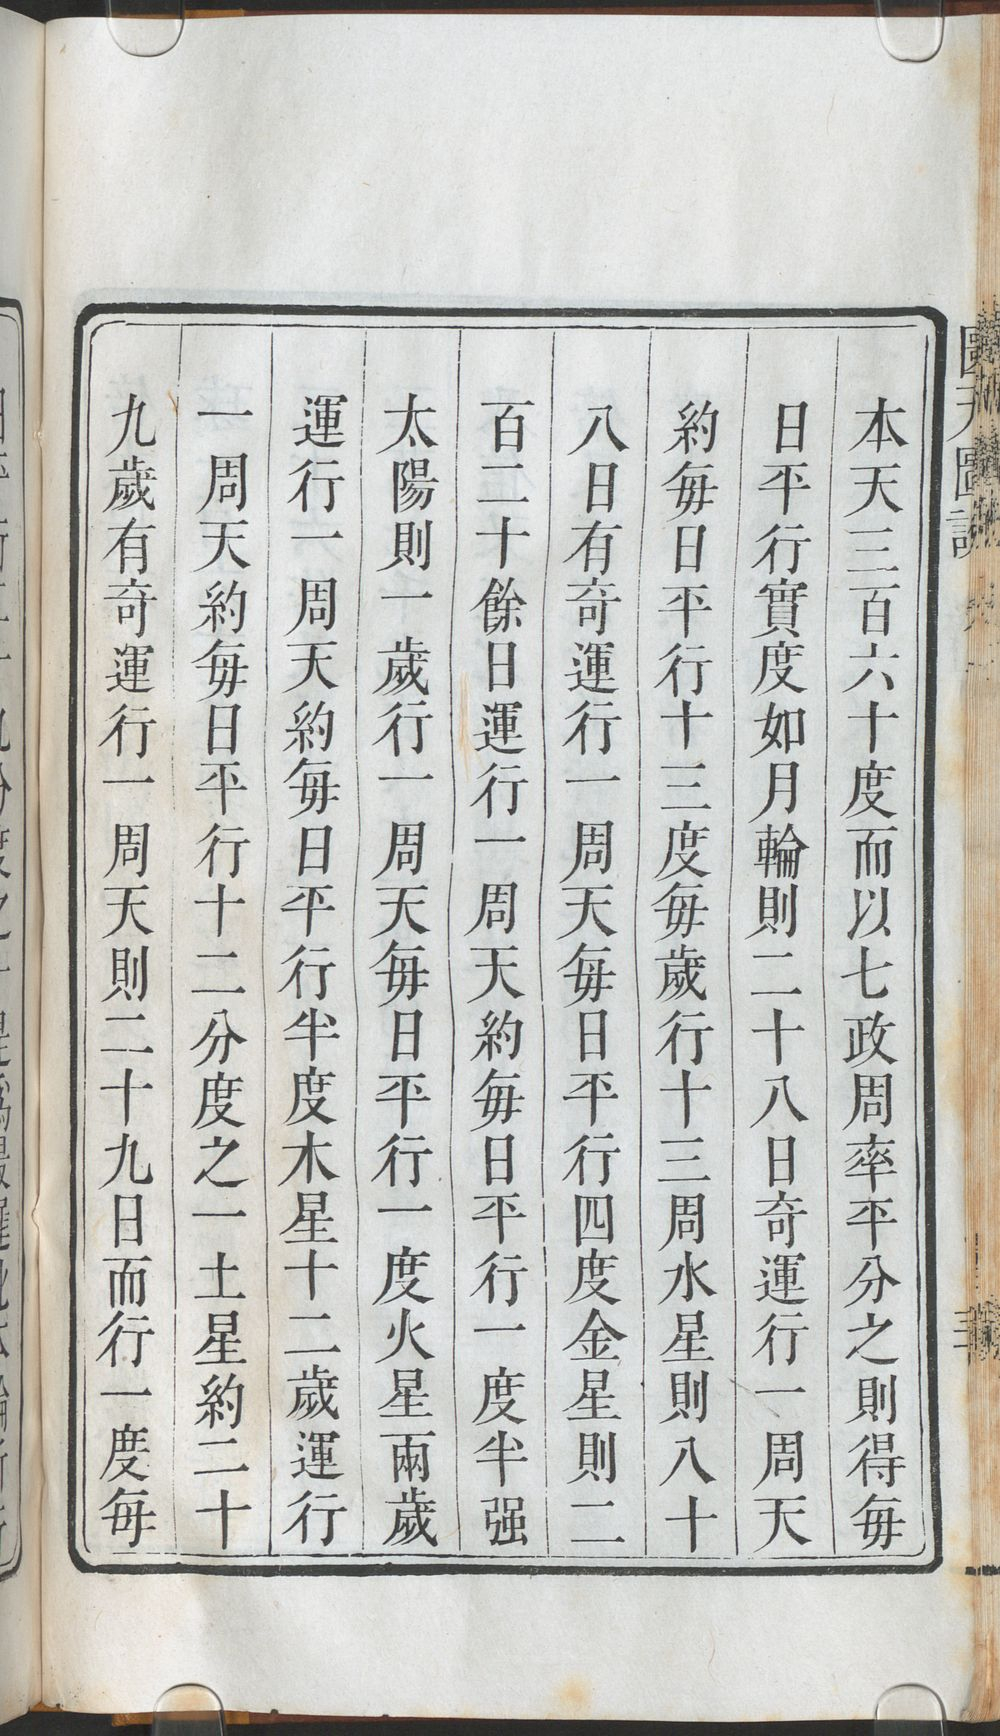 本天三百六十度而以七政周率平分之則得每
日平行實度如月輪則二十八日奇運行一周天
約每日平行十三度每歲行十三周水星則八十
八日有奇運行一周天每日平行四度金星則二
百二十餘日運行一周天約每日平行一度半强
太陽則一歲行一周天每日平行一度火星兩歲
運行一周天約每日平行半度木星十二歲運行
一周天約每日平行十二分度之一土星約二十
九歲有奇運行一周天則二十九日而行一度每